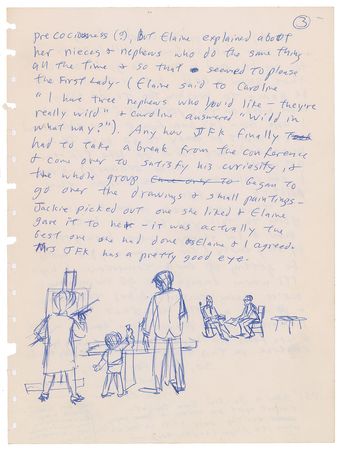 3
precociousness (?), But Elaine explained about
her nieces & nephews who do the same thing
all the time & so that seemed to please
the First Lady. (Elaine said to Caroline
"I have three nephews who you'd like – they're
really wild" & Caroline answered "Wild in
what way?"). Any how JFK finally
had to take a break from the conference
& come over to satisfy his curiosity, &
the whole group began to
go over the drawings & small paintings –
Jackie picked out one she liked & Elaine
gave it to her – it was actually the
best one she had done Elaine & I agreed.
Mrs JFK has a pretty good eye.